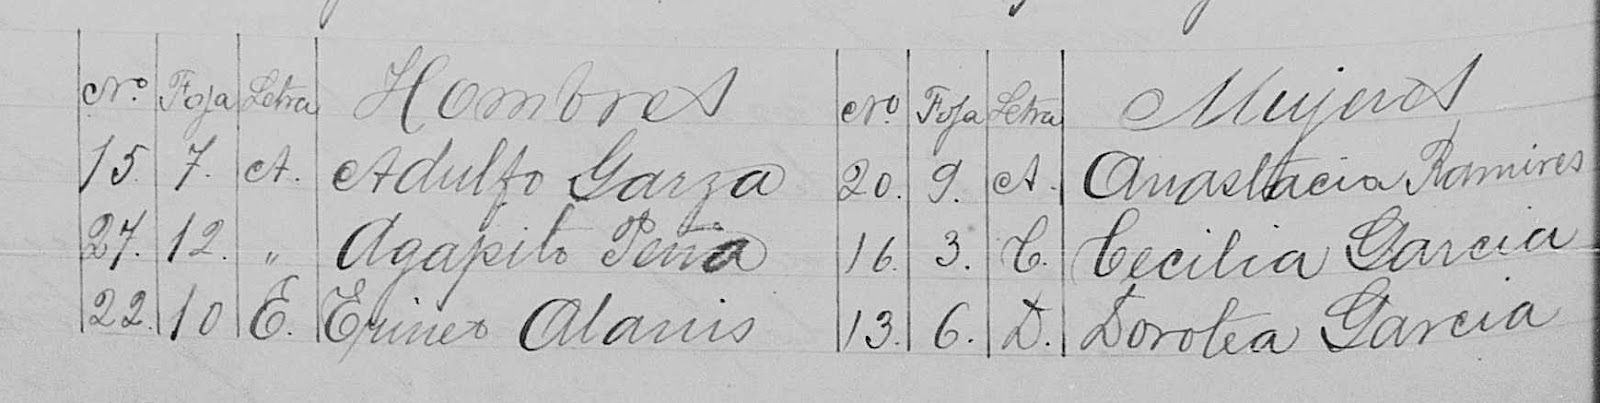 No. Foja Letra Hombres No. Foja Letra Mujeres
15. 7. A. Adulfo Garza 20. 9. A. Anastacia Ramires
27. 12. " Agapito Peña 16. 3. C. Cecilia Garcia
22. 10 E. Erineo Alanis 13. 6. D. Dorotea Garcia